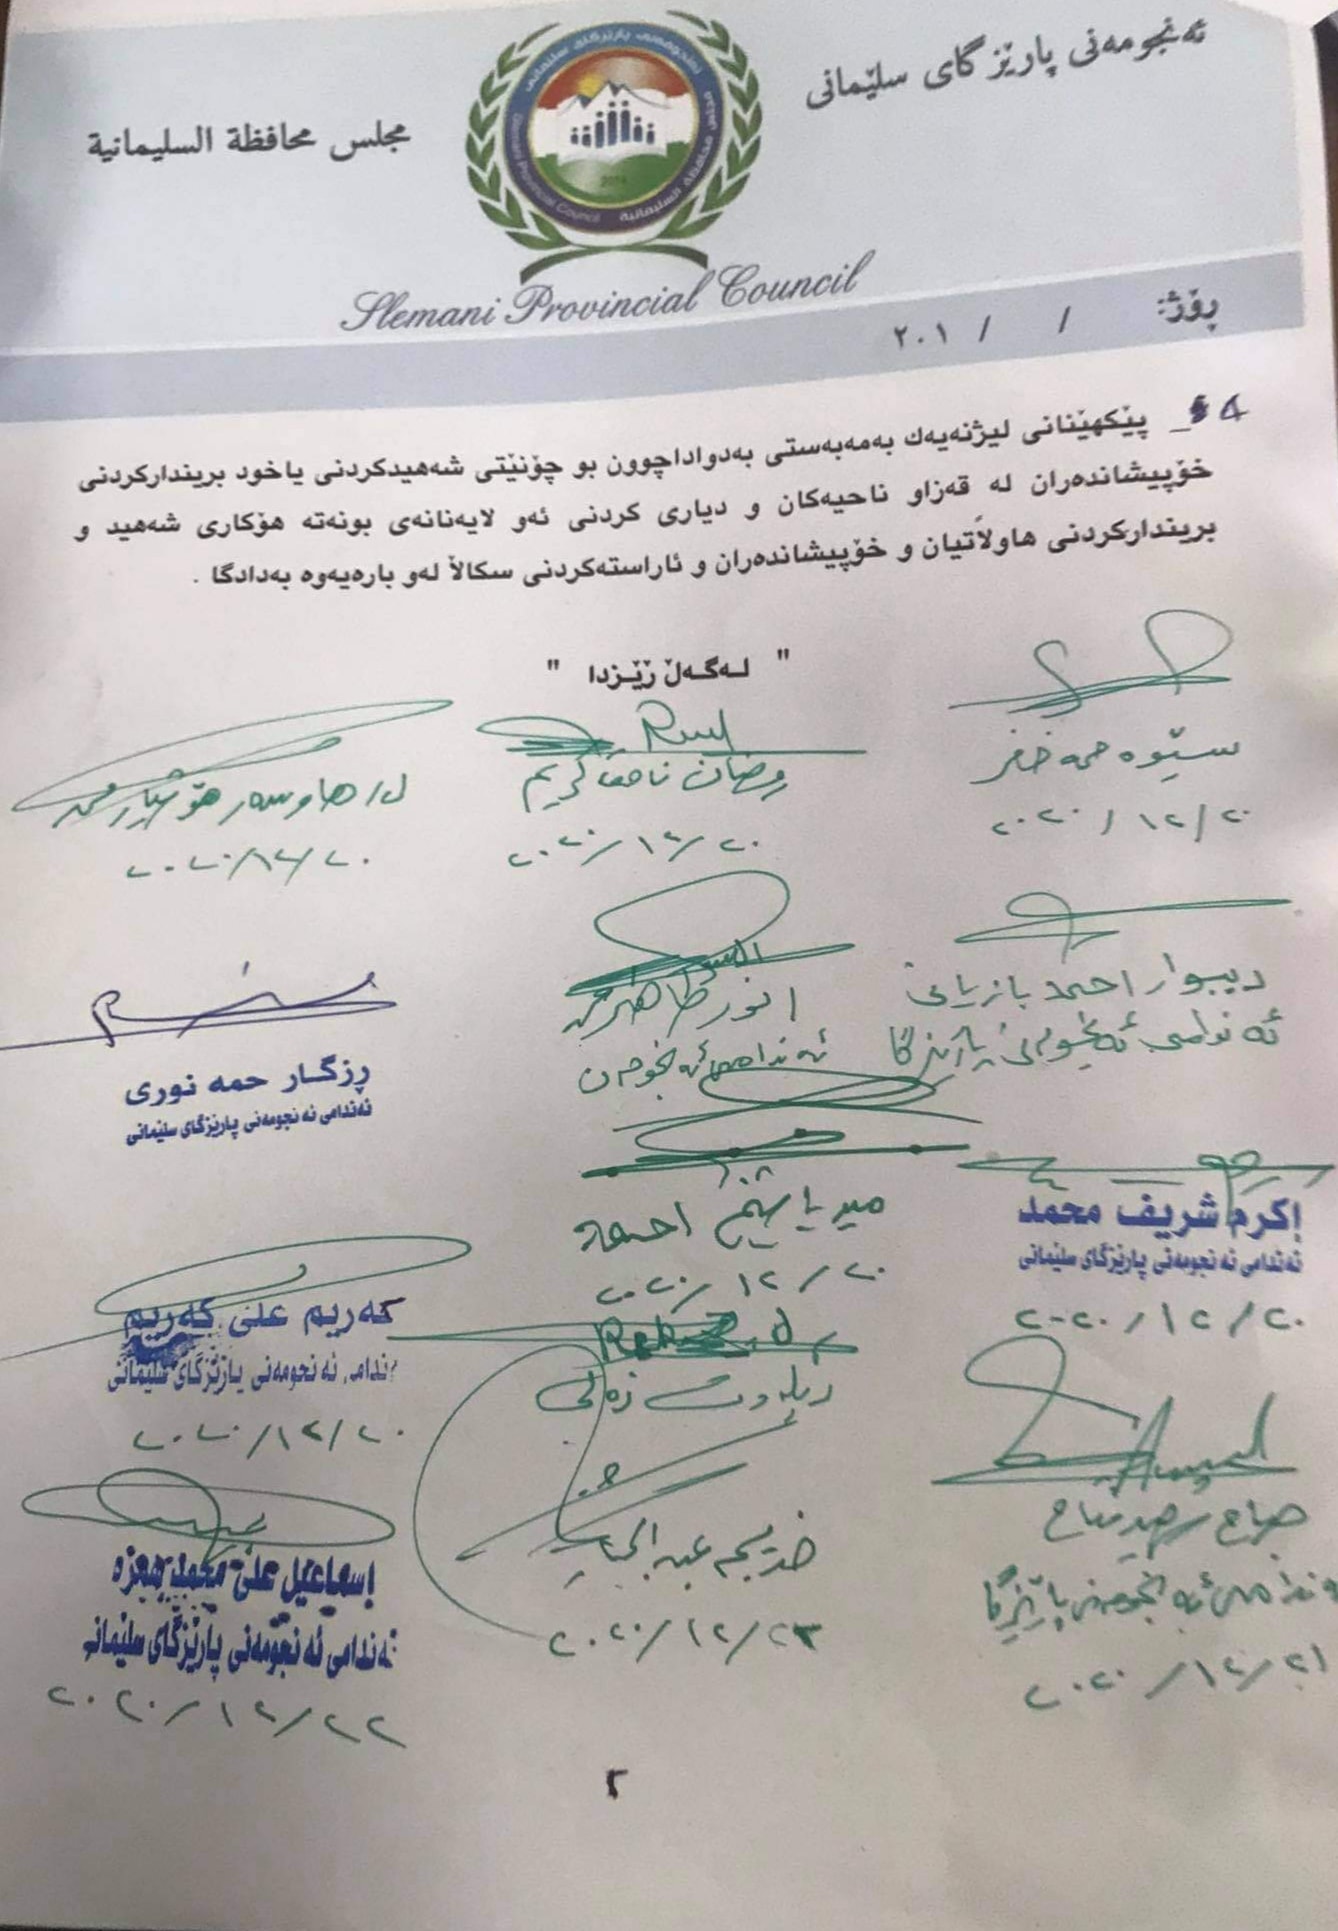 ئەنجومەنی پارێزگای سلێمانی
مجلس محافظة السليمانية
ئەنجومەنی پارێزگای سلێمانی
مجلس محافظة السليمانية
Slemani Provincial Council
Slemani Provincial Council
ڕۆژ: / / ٢٠١
4_ پێکهێنانی لیژنەیەك بەمەبەستی بەدواداچوون بو چۆنێتی شەهیدکردنی یاخود بریندارکردنی
خۆپیشاندەران لە قەزاو ناحیەکان و دیاری کردنی ئەو لایەنانەی بونەتە هۆکاری شەهید و
بریندارکردنی هاولاَتیان و خۆپیشاندەران و ئاراستەکردنی سکالاَ لەو بارەیەوە بەدادگا .
" لەگەڵ ڕێزدا "
سێوە حمه خضر
٢٠٢٠/١٢/٢٠
رمضان كريم
٢٠٢٠/١٢/٢٠
هاوسەر
٢٠٢٠/١٢/٢٠
احمد بازیانی
ئەندامی ئەنجومەنی پارێزگا
انور طاهر
ئەندامی ئەنجومەن
ڕزگار حمه نوری
ئەندامی ئەنجومەنی پارێزگای سلێمانی
إكرم شريف محمد
ئەندامی ئەنجومەنی پارێزگای سلێمانی
٢٠٢٠/١٢/٢٠
احمد
٢٠٢٠/١٢/٢٠
کەریم علی کەریم
ئەندامی ئەنجومەنی پارێزگای سلێمانی
٢٠٢٠/١٢/٢٠
ئەندامی ئەنجومەنی پارێزگا
٢٠٢٠/١٢/٢١
خديجه عبد
٢٠٢٠/١٢/٢٣
إسماعيل علی محمد
ئەندامی ئەنجومەنی پارێزگای سلێمانی
٢٠٢٠/١٢/٢٢
٢